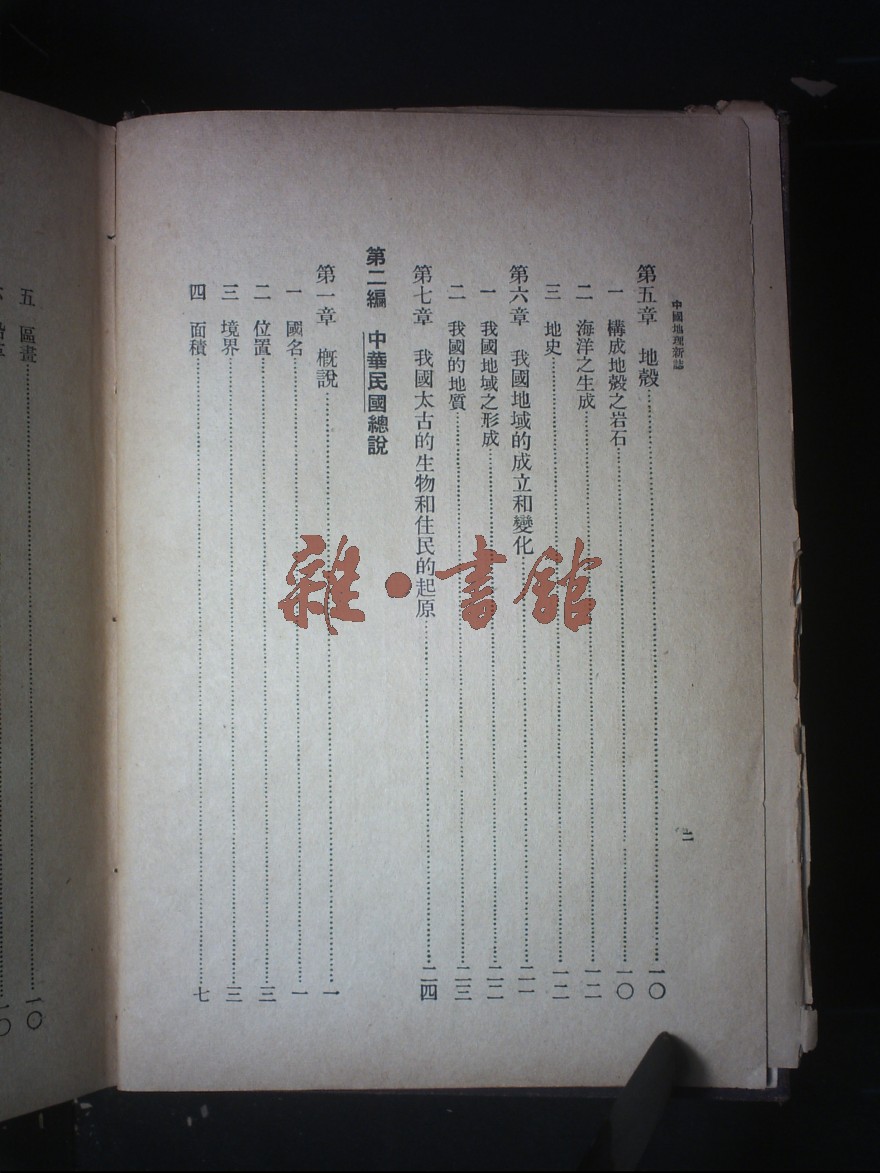 中國地理新誌
二
第五章 地殼……一〇
一 構成地殼之岩石……一〇
二 海洋之生成……一二
三 地史……一二
第六章 我國地域的成立和變化……二一
一 我國地域之形成……二二
二 我國的地質……二三
第七章 我國太古的生物和住民的起原……二四
第二編 中華民國總說
第一章 概說……一
一 國名……一
二 位置……三
三 境界……三
四 面積……七
五 區畫……一〇
雜·書館